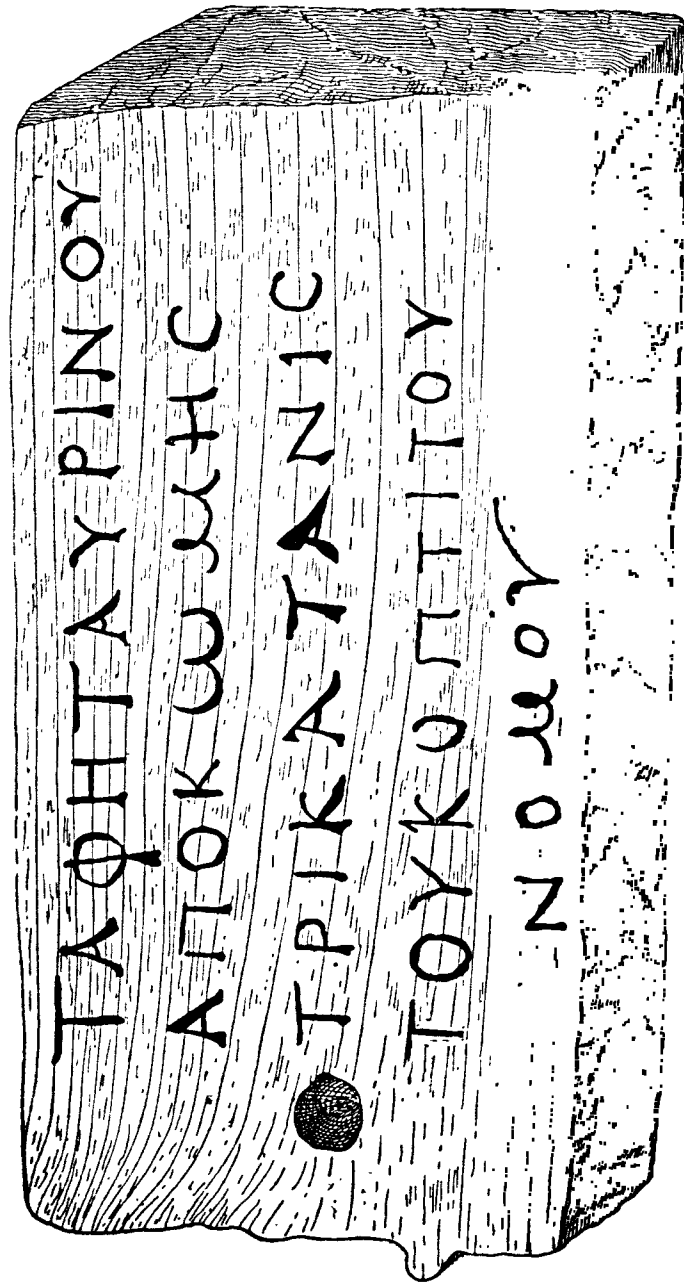 ΤΑΦΗΤΑΥΡΙΝΟΥ
ΑΠΟΚΩΜΗϹ
ΤΡΙΚΑΤΑΝΙϹ
ΤΟΥΚΟΠΤΙΤΟΥ
ΝΟΜΟΥ